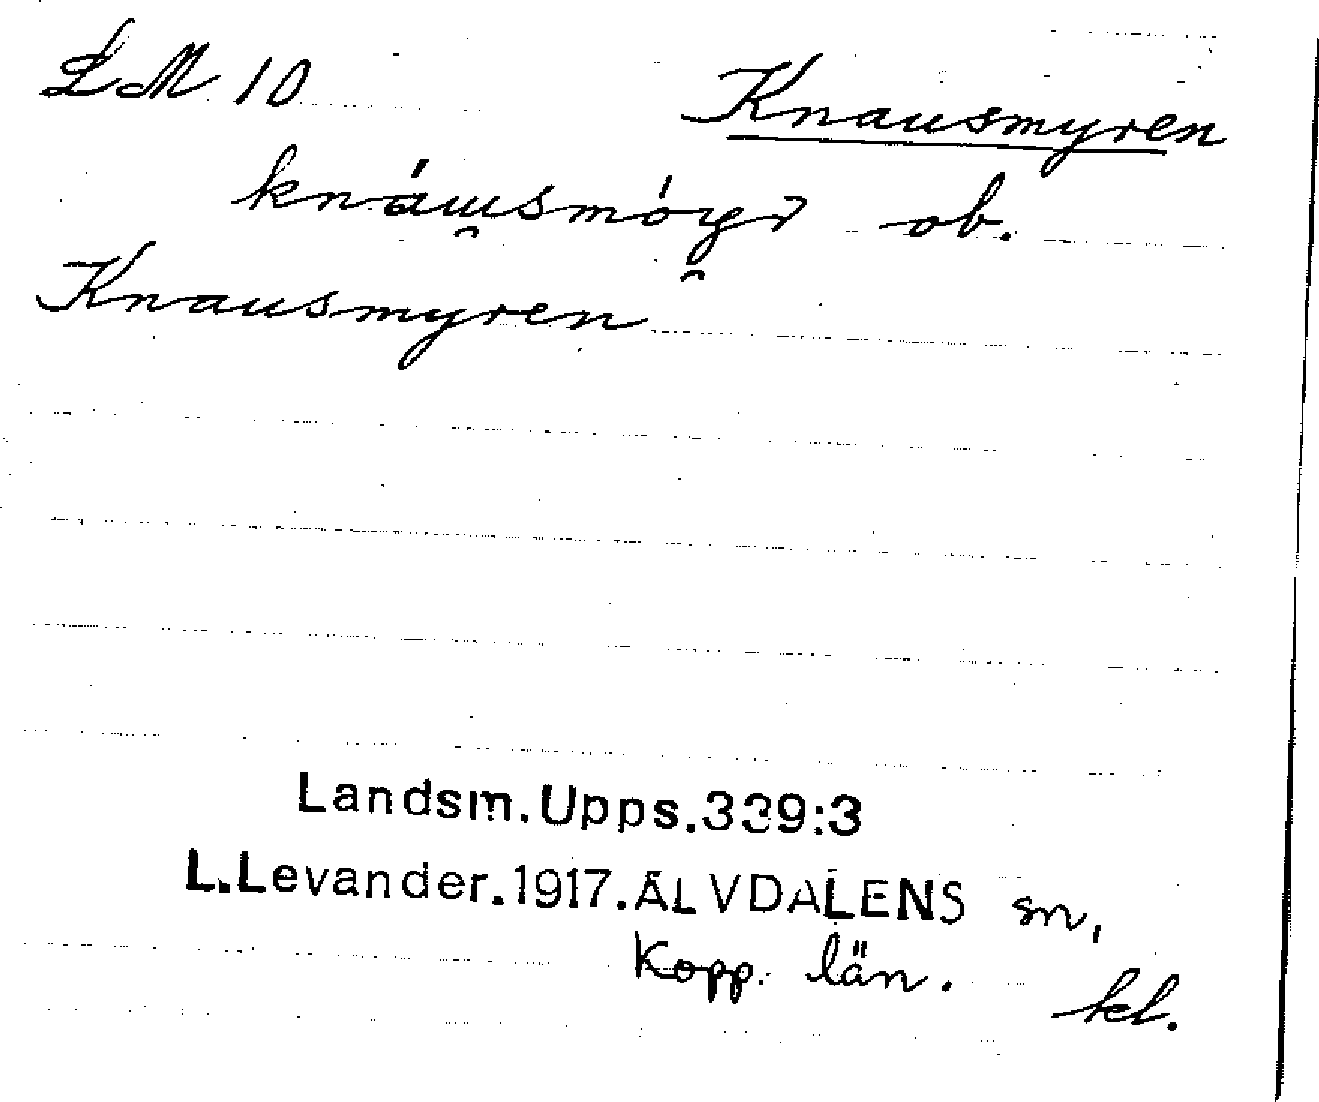 LM 10 Knausmyren
ob.
Knausmyren
Landsm.Upps.339:3
L.Levander.1917.ÄLVDALENS sn.
Kopp. län.
kl.